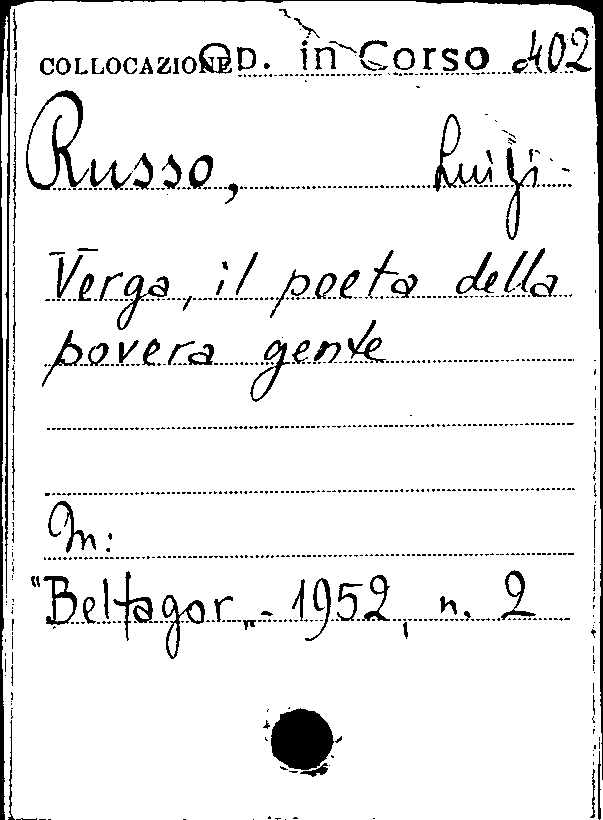 COLLOCAZIONE Op. in Corso 402
Russo, Luigi
Verga, il poeta della
povera gente
In:
"Beltagor„ - 1952, n. 2